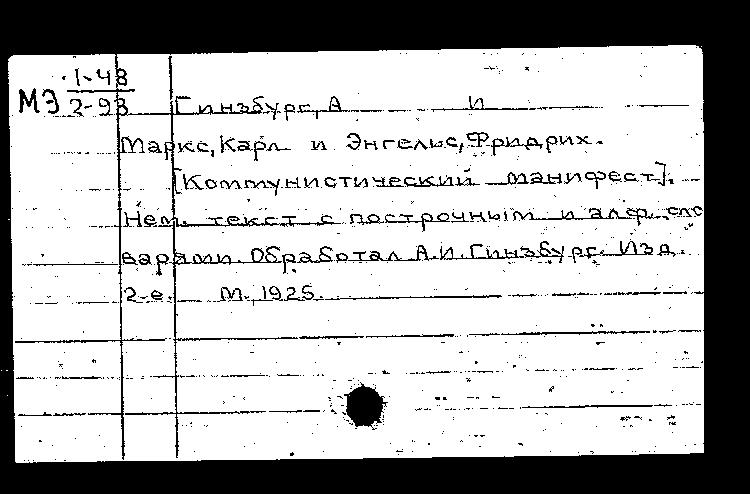 1-48
МЭ 2-93 Гинзбург, А И
Маркс, Карл и Энгельс, Фридрих.
[Коммунистический манифест].
Нем. текст с построчным и алф. сло
варями. Обработал А.И. Гинзбург. Изд.
2-е. М., 1925.